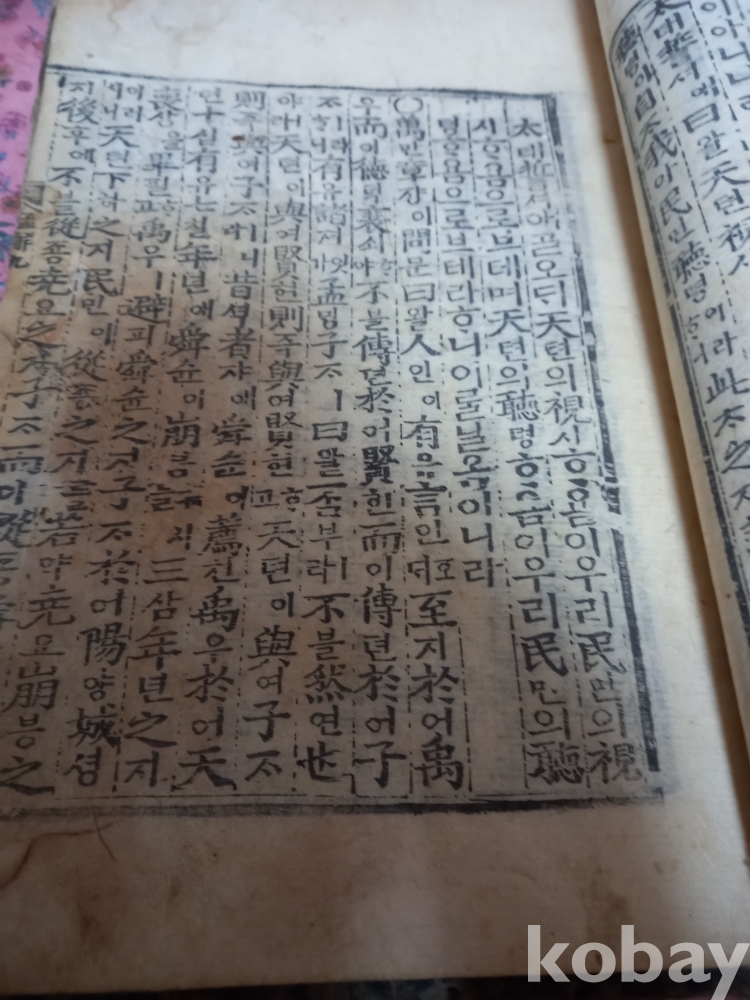 太대誓셔에曰왈天텬視시
聽텽이自ᄌᆞ我아民민聽텽이라ᄒᆞ니此ᄎᆞ之지
太태誓셔애ᄀᆞᆯ오ᄃᆡ天텬의視시ᄒᆞ욤이우리民민의視
시ᄒᆞ욤으로브테며天텬의聽텽ᄒᆞ욤이우리民민의聽
텽ᄒᆞ욤으로브테라ᄒᆞ니이ᄅᆞᆯ닐옴이니라
○萬만章쟝이問문曰왈人인이有유言언호ᄃᆡ至지於어禹
우而이德덕衰쇠ᄒᆞ야不블傳뎐於어賢현而이傳뎐於어子
ᄌᆞㅣ라ᄒᆞ니有유諸져잇가孟ᄆᆡᆼ子ᄌᆞㅣ曰왈否부ㅣ라不블然연也
야라天텬이與여賢현則즉與여賢현ᄒᆞ고天텬이與여子ᄌᆞ
則즉與여子ᄌᆞㅣ니라昔셕者쟈애舜슌이薦쳔禹우於어天
텬十십有유七칠年년에舜슌이崩븡커시ᄂᆞᆯ三삼年년之지
喪상을畢필ᄒᆞ고禹우ㅣ避피舜슌之지子ᄌᆞ於어陽양城셩
이러시니天텬下하之지民민이從죵之지ᄅᆞᆯ若약堯요崩븡之
지後후에不블從죵堯요之지子ᄌᆞ而이從죵
kobay